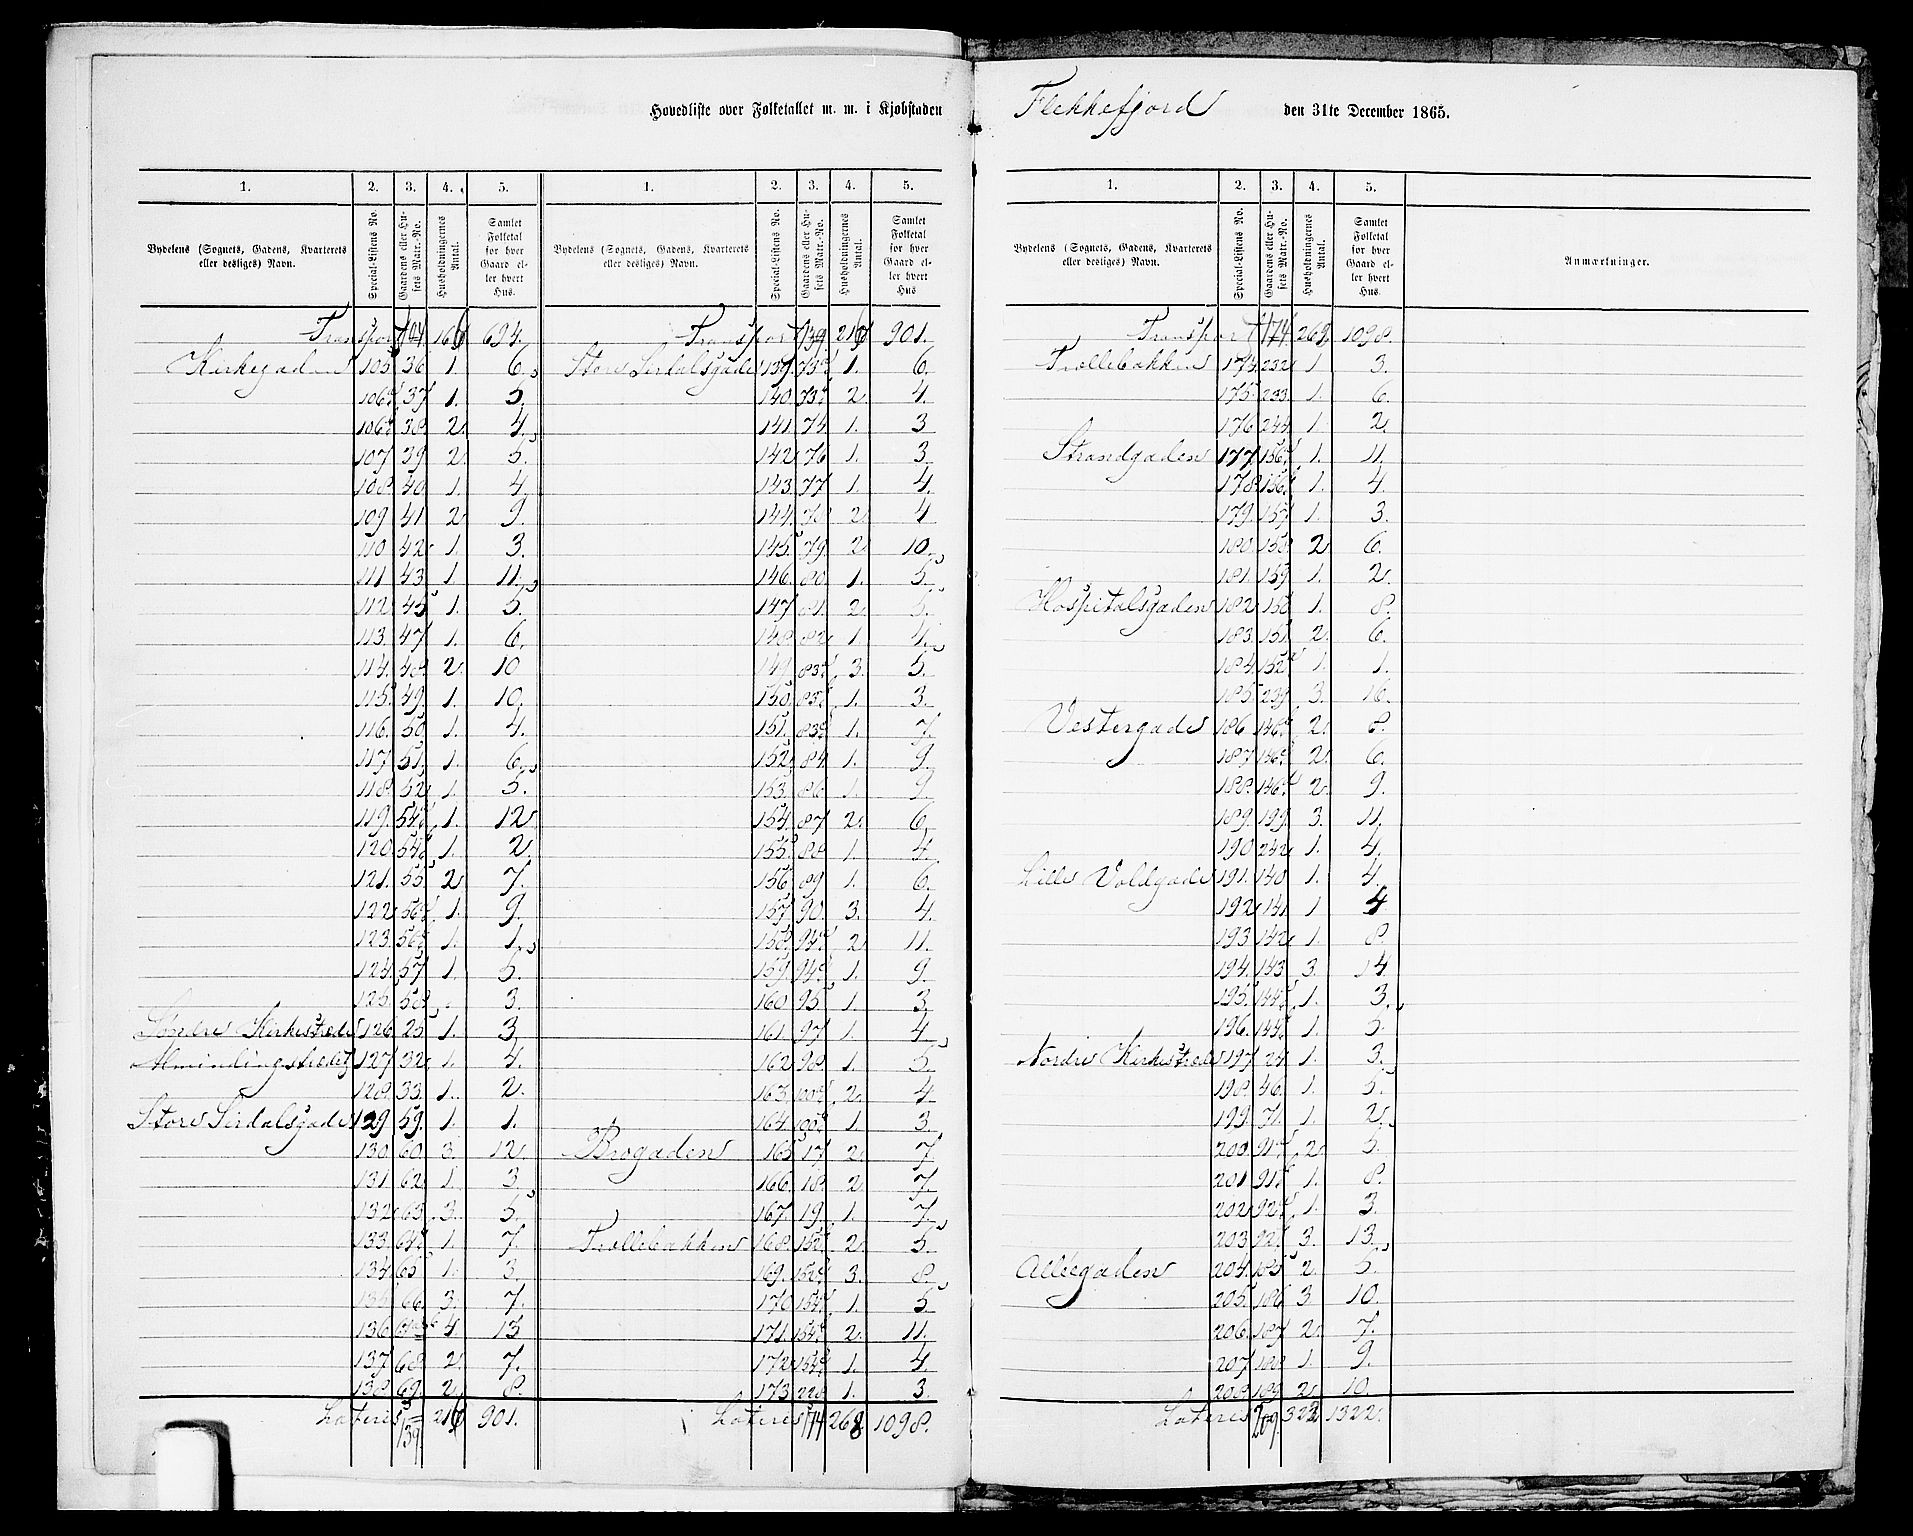 Hovedliste over Folketallet m. m. i Kjøbstaden Flekkefjord den 31te December 1865.
1. 2. 3. 4. 5. 1. 2. 3. 4. 5.
Bydelens (Sognets, Gadens, Kvarterets eller desliges) Navn. Special-Listens No. Gaardens eller Husets Matr.-No. Husholdningernes Antal. Samlet Folketal for hver Gaard eller hvert Hus.
Bydelens (Sognets, Gadens, Kvarterets eller desliges) Navn. Special-Listens No. Gaardens eller Husets Matr.-No. Husholdningernes Antal. Samlet Folketal for hver Gaard eller hvert Hus
Transport 694.
Kirkegaden 105 36 1. 6
106 37 1. 5.
106 38 2. 4.
107 39 2. 5.
108 40 1. 4.
109 41 2 9.
110 42 1. 3.
111 43 1. 11.
112 45 1. 5.
113. 47 1. 6.
114. 48 2. 10
115. 49. 1. 10.
116. 50. 1. 4.
117. 51. 1. 6.
118. 52 1. 5.
119. 54 1. 12
120. 54 1. 2
121. 55. 2 7.
122 56 1. 9.
123. 56 1. 1.
124. 57 1. 5.
125. 58 3.
Søndre Kirkestræde 126 25 1. 3
Almindingstrædet 127 32 1. 4.
128. 33. 1. 2.
Store Sirdalsgade 129 59. 1. 1.
130. 60. 3. 12.
131 62 1. 3.
132. 63. 3. 5.
133. 64 1. 7.
134 65 1. 3.
135 66. 3. 7.
136 4 13
137 68 2. 7.
138. 69. 2. 8.
Lateris 139. 901.
Transport 139 901.
Store Sirdalsgade 139. 73 1. 6.
140. 73 2. 4.
141. 74. 1. 3
142. 76 1. 3.
143. 77 1. 4.
144. 78 2. 4
145. 79. 2. 10.
146. 80. 1. 5.
147 81. 2. 5.
148. 82 1. 4.
149. 83 3. 5.
150. 83 1. 3.
151. 83 1. 7.
152. 84. 1. 9.
153. 86 1. 9.
154. 87 2. 6.
155. 88 1. 4.
156. 89 1. 6.
157. 90. 3. 4.
158. 94 2. 11.
159. 94 1. 9.
160. 95 1. 3.
161. 97 1. 4
162. 98. 1. 5.
163. 100 2. 4
164. 100 1. 3.
Brogaden 165 17 2. 7
166. 18. 2. 7
167. 19. 1. 7
Trollebakken 168. 152 2. 5.
169. 152 3. 8.
170. 154 1. 5
171. 154 2. 11.
172. 154 1. 4
173. 228 1. 3
Lateris 174 268 1098.
1. 2. 3. 4. 5.
Bydelens (Sognets, Gadens, Kvarterets eller desliges) Navn. Special-Listens No. Gaardens eller Husets Matr.-No. Husholdningernes Antal. Samlet Folketal for hver Gaard eller hvert Hus. Anmærkninger.
Transport 174 1098.
Trollebakken 174. 232 1 3.
175. 233. 1. 6.
176 244. 1. 2.
Strandgaden 177 156 1. 11.
178. 156 1. 4.
179. 157 1. 3.
180. 158 2 6.
181. 159. 1. 2.
Hospitalsgaden 182. 150 1. 8.
183. 151. 2. 6.
184. 152 1. 1.
185. 239. 3. 16.
Vestergade 186 146 2. 8.
187. 146 2. 6.
188. 146 2. 9.
189. 199. 3. 11.
190 242 1. 4.
Lille Voldgade 191. 140 1. 4.
192. 141 1 4
193 142 1. 8.
194. 143 3. 14
195. 144 1. 3.
196. 144 1. 5.
Nordre Kirkestræde 197 24 1. 3.
198. 46. 1. 5.
199. 71. 1. 2.
200. 91 2. 5.
201 91 1. 8.
202 92 1. 3.
203 92 3. 13.
Alleegaden 204. 185 2. 5.
205. 186 3 10.
206. 187 2. 7.
207. 188 1. 9.
208. 189. 2. 10.
Lateris 209. 1322.